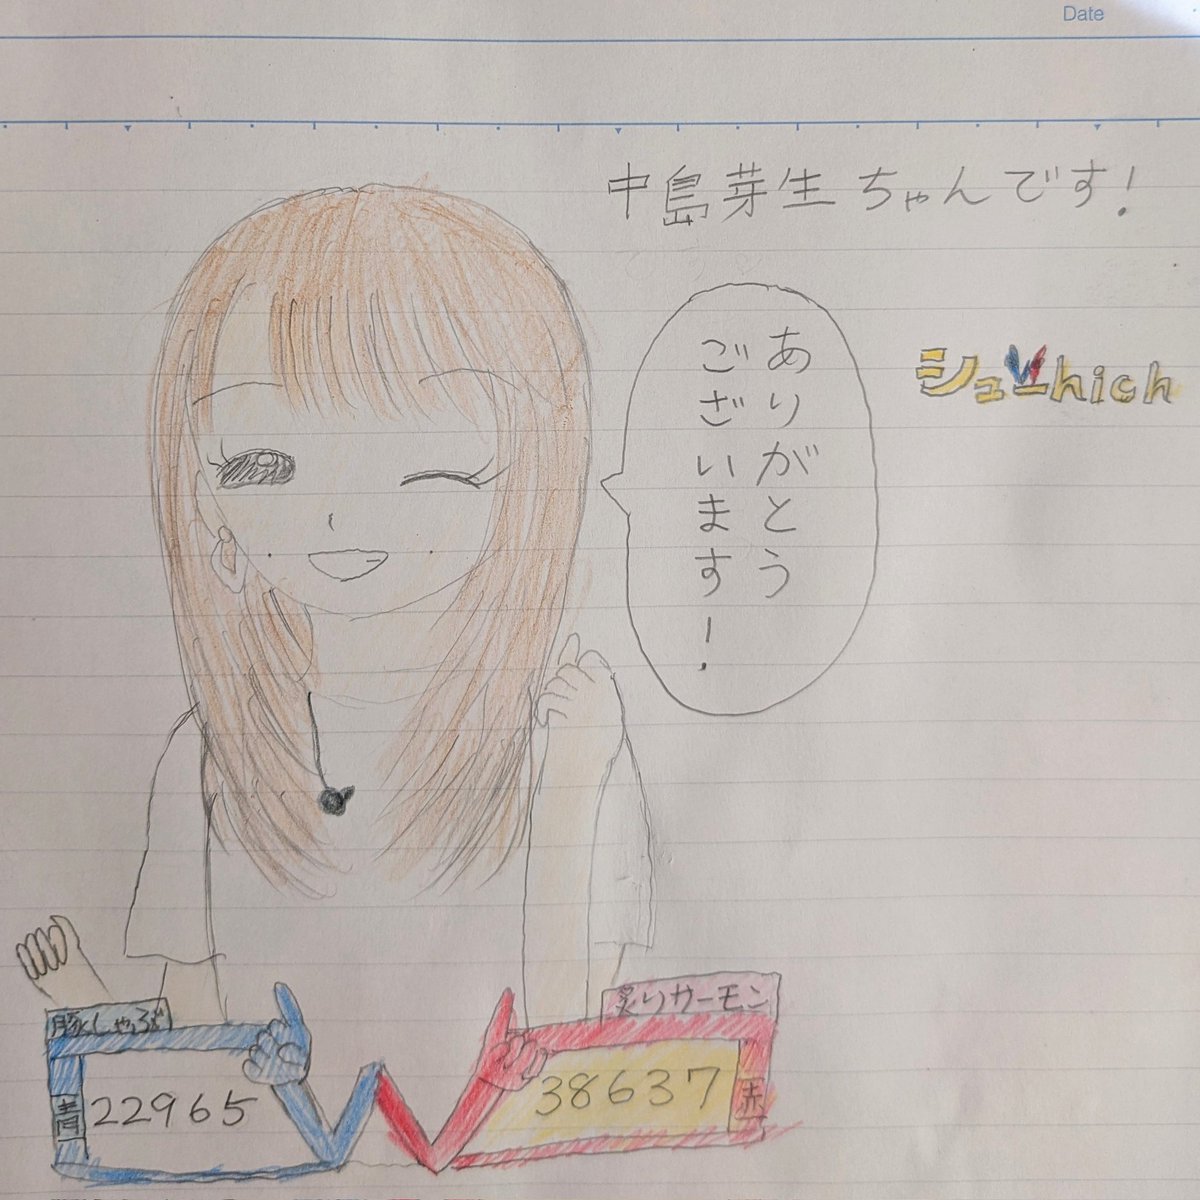 Date
中島芽生ちゃんです!
ありがとう
ございます!
シューhich
豚しゃぶ
炙りサーモン
青
22965
38637
赤